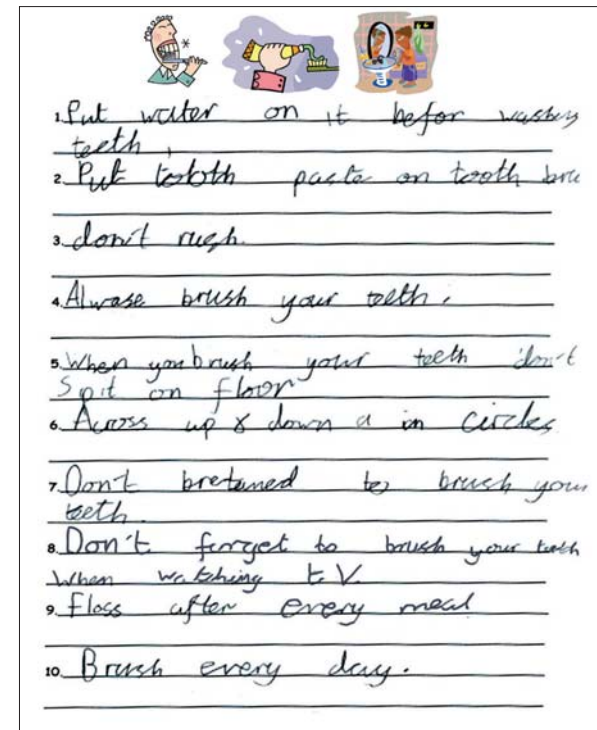 1. Put water on it befor washing
teeth,
2. Put tobth paste on tooth bru
3. don't rush.
4. Alwase brush your teeth.
5. When you brush your teeth don't
Spit on floor
6. Across up & down a in circles
7. Don't bretened to brush your
teeth.
8. Don't forget to brush your teeth
When watching t.V.
9. Floss after every meal
10. Brush every day.